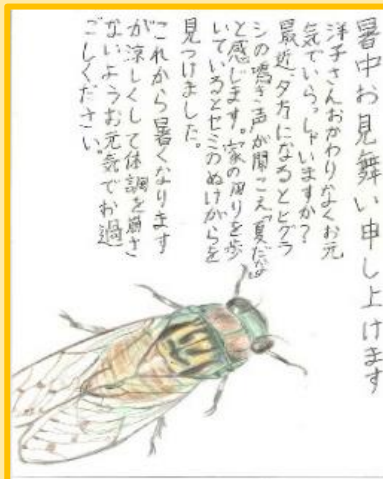 暑中お見舞い申し上げます
洋子さんおかわりなくお元
気でいらっしゃいますか?
最近、夕方になるとヒグラ
シの鳴き声が聞こえ「夏だなぁ」
と感じます。家の周りを歩
いているとセミのぬけがらを
見つけました。
これから暑くなります
が涼しくして体調を崩さ
ないようお元気でお過
ごしください。